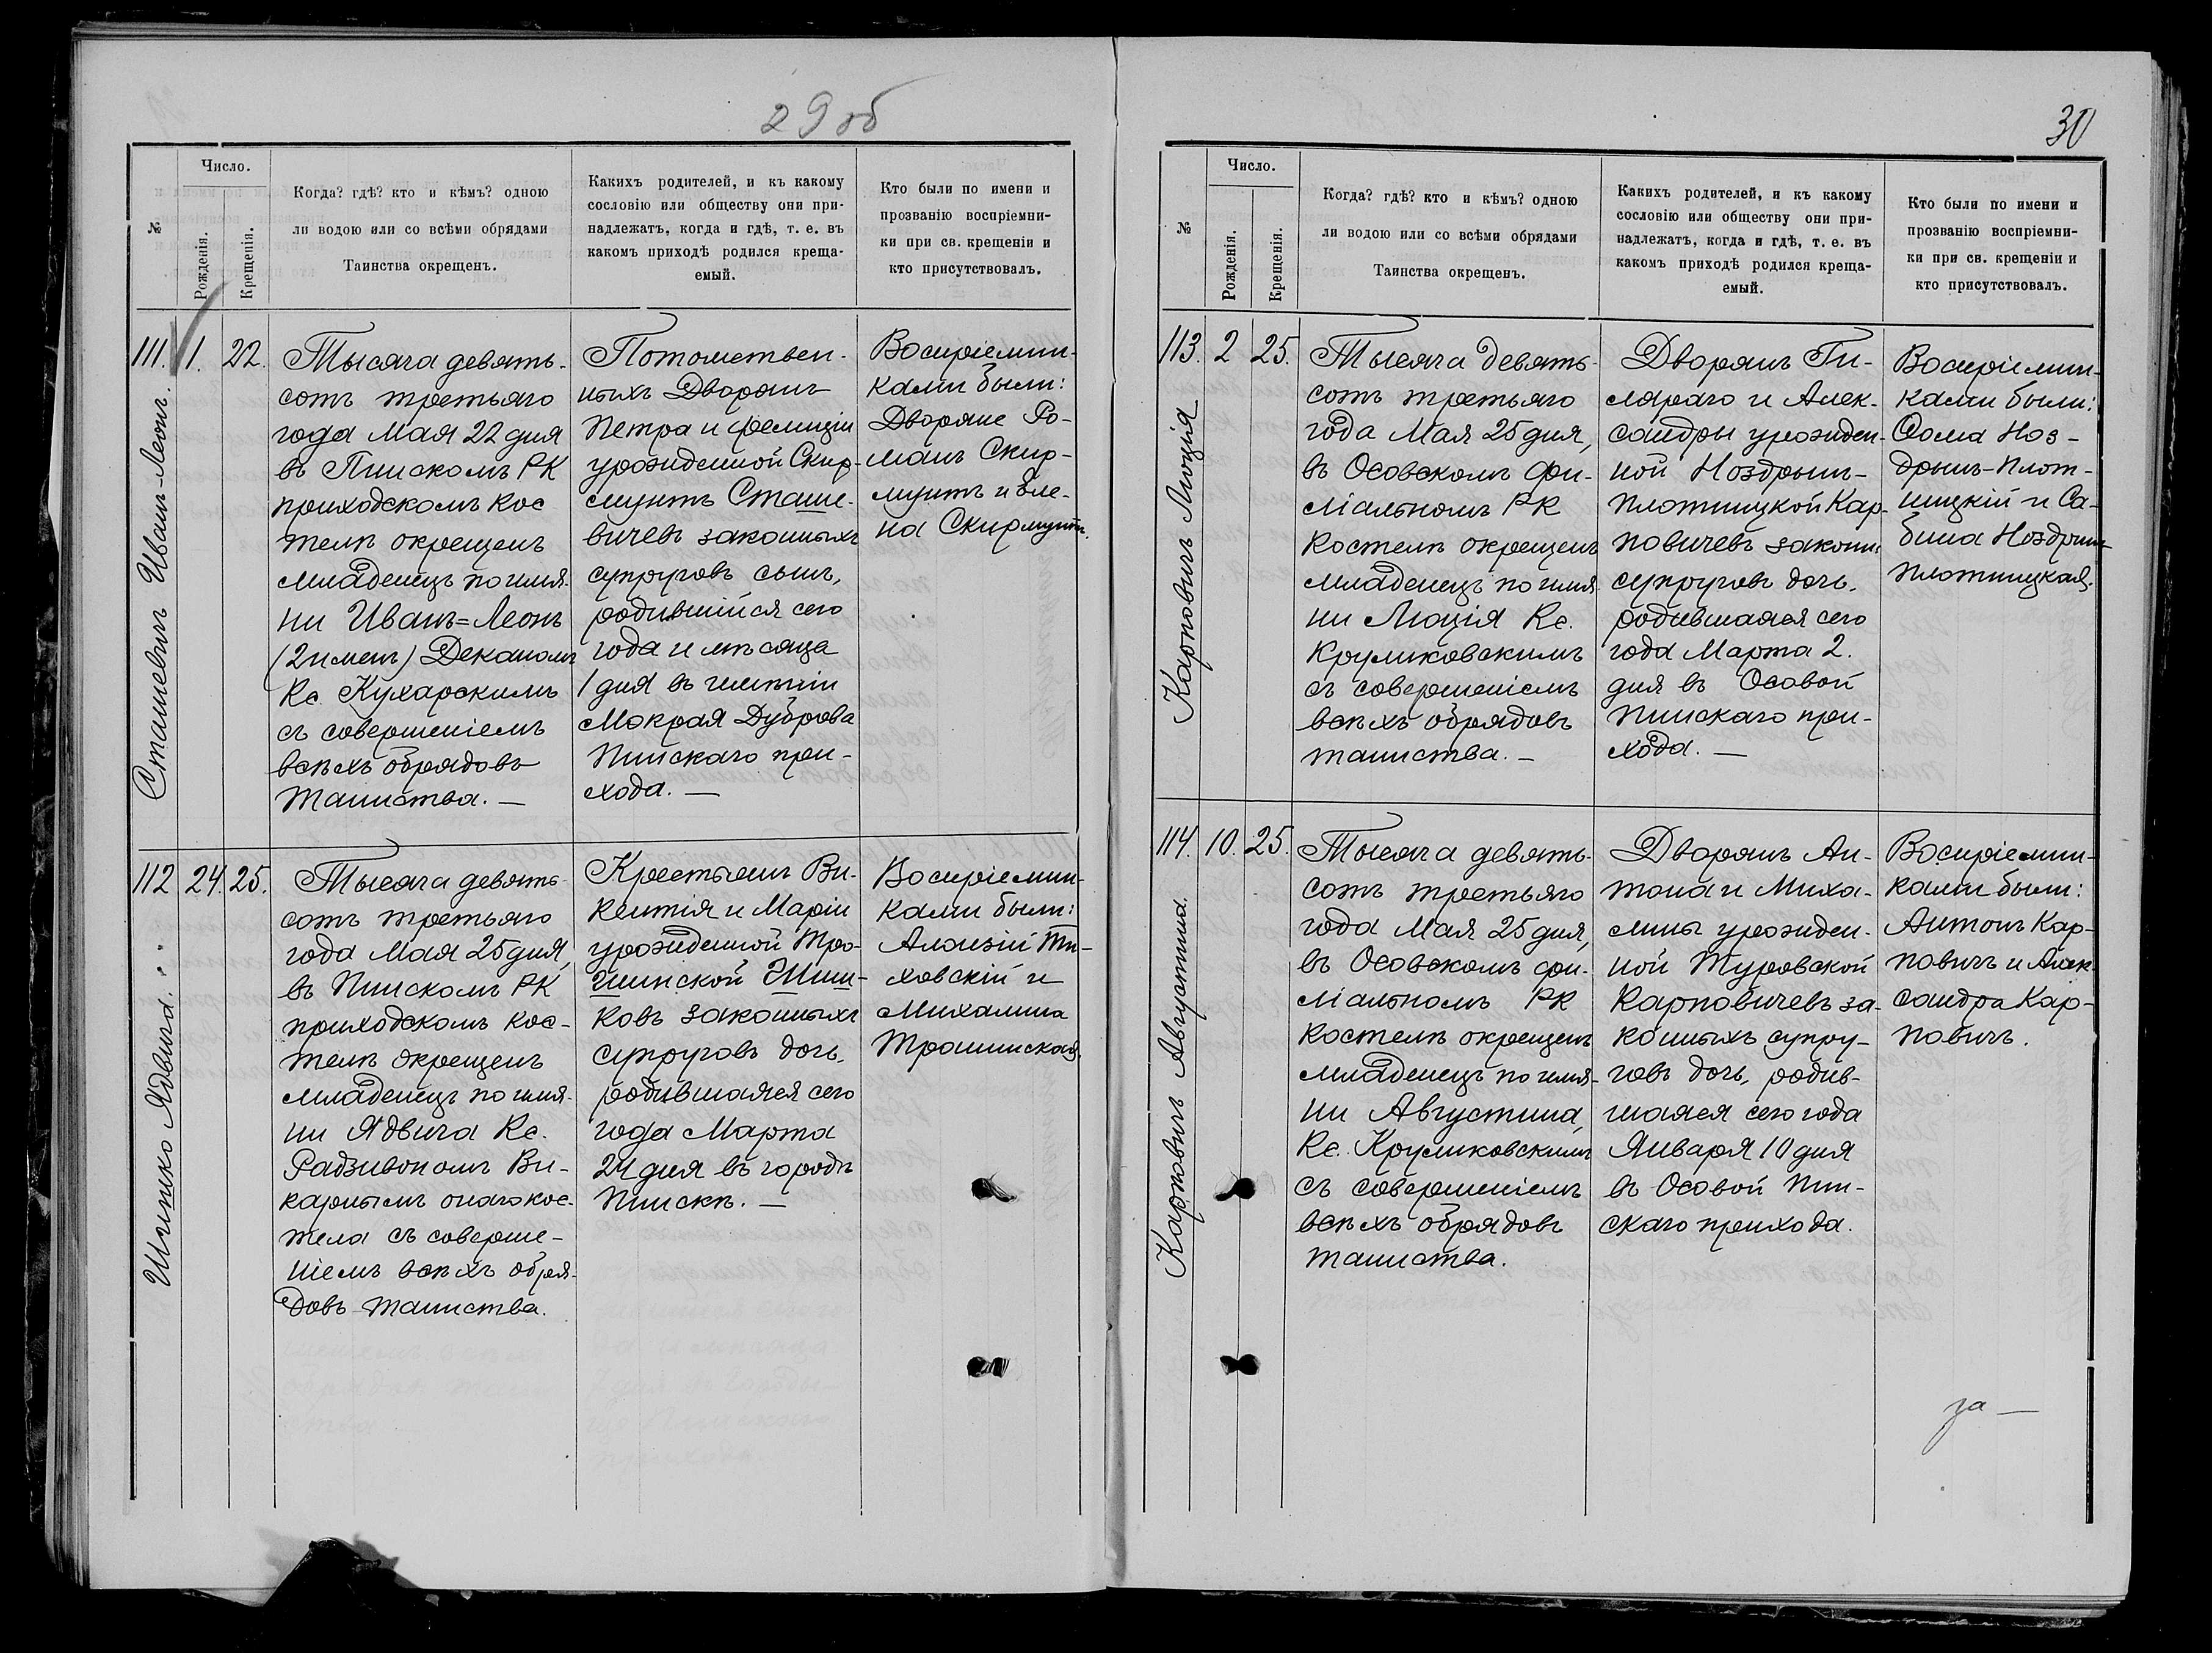 29 об
Число.
№
Рожденія.
Крещенія.
Когда? гдѣ? кто и кѣмъ? одною
ли водою или со всѣми обрядами
Таинства окрещенъ.
Какихъ родителей, и къ какому
сословію или обществу они при-
надлежатъ, когда и гдѣ, т. е. въ
какомъ приходѣ родился креща-
емый.
Кто были по имени и
прозванію воспріемни-
ки при св. крещеніи и
кто присутствовалъ.
111. 1. 22.
Сташевичъ Иванъ-Леонъ.
Тысяча девять-
сотъ третьяго
года Мая 22 дня
въ Пинскомъ РК
приходскомъ Кос
телѣ окрещенъ
младенецъ по имя-
ни Иванъ=Леонъ
(2 именъ) Деканомъ
Кс. Кухарскимъ
съ совершеніемъ
всѣхъ обрядовъ
Таинства. —
Потомствен-
ныхъ Дворянъ
Петра и Фелиціи
урожденной Скир-
мунтъ Сташе-
вичевъ законныхъ
супруговъ сынъ,
родившійся сего
года и мѣсяца
1 дня въ имѣніи
Мокрая Дуброва
Пинскаго при-
хода. —
Воспріемни-
ками были:
Дворяне Ро-
манъ Скир-
мунтъ и Еле-
на Скирмунтъ.
112 24. 25.
Шишко Ядвига.
Тысяча девять-
сотъ третьяго
года Мая 25 дня,
въ Пинскомъ РК
приходскомъ кос-
телѣ окрещенъ
младенецъ по имя-
ни Ядвига Кс.
Радзивономъ Ви-
карнымъ онаго кос-
тела съ соверше-
ніемъ всѣхъ обря-
довъ таинства.
Крестьянъ Ви-
кентія и Маріи
урожденной Тро-
шинской Шиш-
ковъ законныхъ
супруговъ дочь,
родившаяся сего
года Марта
24 дня въ городѣ
Пинскѣ. —
Воспріемни-
ками были:
Алоизій Ти-
ховскій и
Михалина
Трошинская.
30
Число.
№
Рожденія.
Крещенія.
Когда? гдѣ? кто и кѣмъ? одною
ли водою или со всѣми обрядами
Таинства окрещенъ.
Какихъ родителей, и къ какому
сословію или обществу они при-
надлежатъ, когда и гдѣ, т. е. въ
какомъ приходѣ родился креща-
емый.
Кто были по имени и
прозванію воспріемни-
ки при св. крещеніи и
кто присутствовалъ.
113. 2 25.
Карповичъ Люція
Тысяча девять-
сотъ третьяго
года Мая 25 дня,
въ Осовскомъ фи-
ліальномъ РК
Костелѣ окрещенъ
младенецъ по имя-
ни Люція Кс.
Круликовскимъ
съ совершеніемъ
всѣхъ обрядовъ
таинства. —
Дворянъ Ги-
ляраго и Алек-
сандры урожден-
ной Ноздрынъ-
Плотницкой Кар-
повичевъ законн.
супруговъ дочь,
родившаяся сего
года Марта 2.
дня въ Осовой
Пинскаго при-
хода. —
Воспріемни-
ками были:
Ѳома Ноз-
дрынъ-Плот-
ницкій и Са-
бина Ноздрынъ
Плотницкая.
114. 10. 25.
Карповичъ Августина.
Тысяча девять-
сотъ третьяго
года Мая 25 дня,
въ Осовскомъ фи-
ліальномъ РК
костелѣ окрещенъ
младенецъ по имя-
ни Августина,
Кс. Круликовскимъ
съ совершеніемъ
всѣхъ обрядовъ
таинства.
Дворянъ Ан-
тона и Миха-
лины урожден-
ной Туровской
Карповичевъ за-
конныхъ супру-
говъ дочь, родив-
шаяся сего года
Января 10 дня
въ Осовой Пин-
скаго прихода.
Воспріемни-
ками были:
Антонъ Кар-
повичъ и Алек-
сандра Кар-
повичъ.
за —